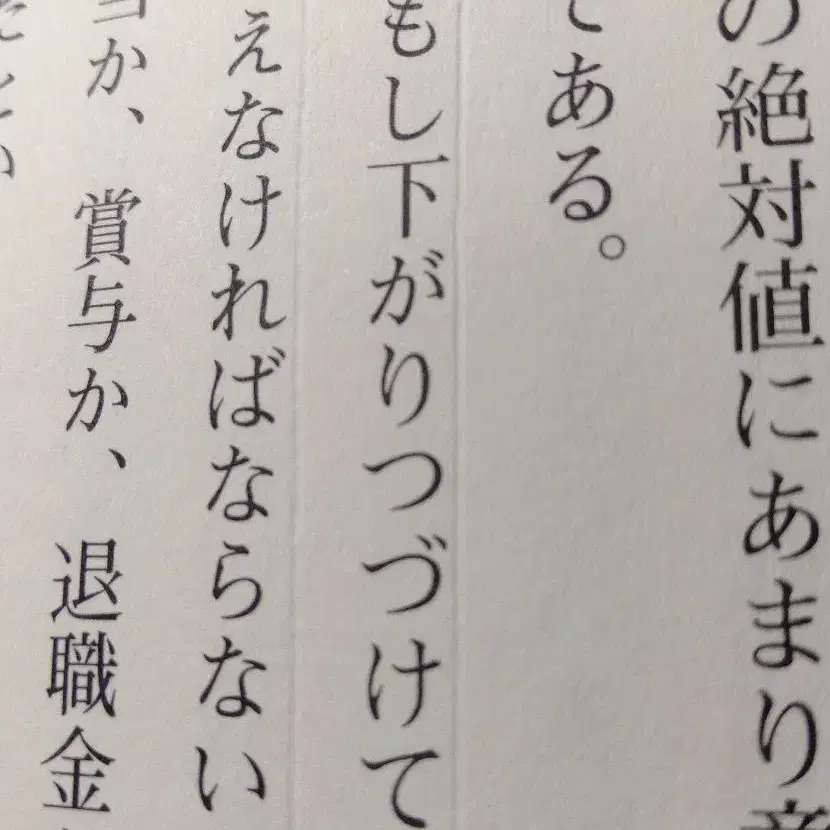 の絶対値にあまり
である。
もし下がりつづけて
えなければならない
か、賞与か、退職金